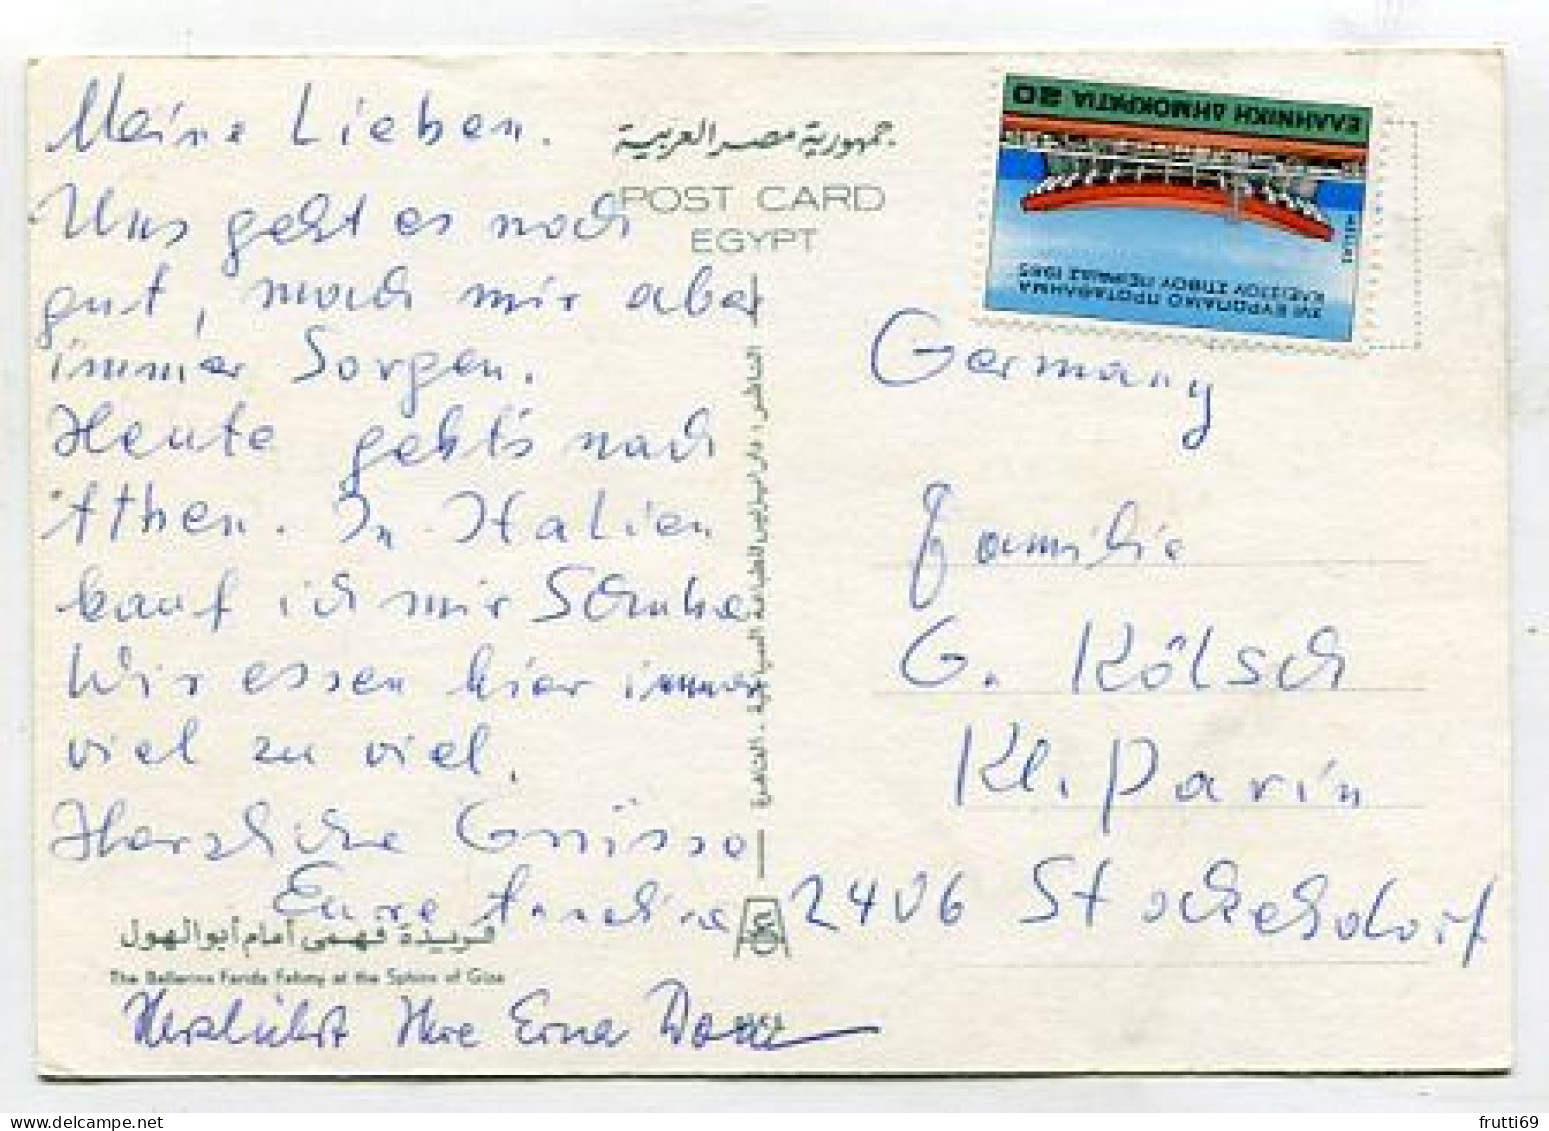 Meine Lieben.
Uns geht es noch
gut, mach mir aber
immer Sorgen.
Heute geht's nach
Athen. In Italien
kauf ich mir Schuhe
Wir essen hier immer
viel zu viel.
Herzliche Grüsse
Eure
Herzlichst Ihre Erna
جمهورية مصر العربية
POST CARD
EGYPT
فريدة فهمى أمام أبو الهول
The Ballerina Farida Fahmy at the Sphinx of Giza
ΕΛΛΗΝΙΚΗ ΔΗΜΟΚΡΑΤΙΑ 20
HELLAS
XVI ΕΥΡΩΠΑΪΚΟ ΠΡΩΤΑΘΛΗΜΑ
ΚΛΕΙΣΤΟΥ ΣΤΙΒΟΥ ΠΕΙΡΑΙΑΣ 1985
Germany
Familie
G. Kölsch
Kl. Parin
2406 Stockelsdorf
frutti69